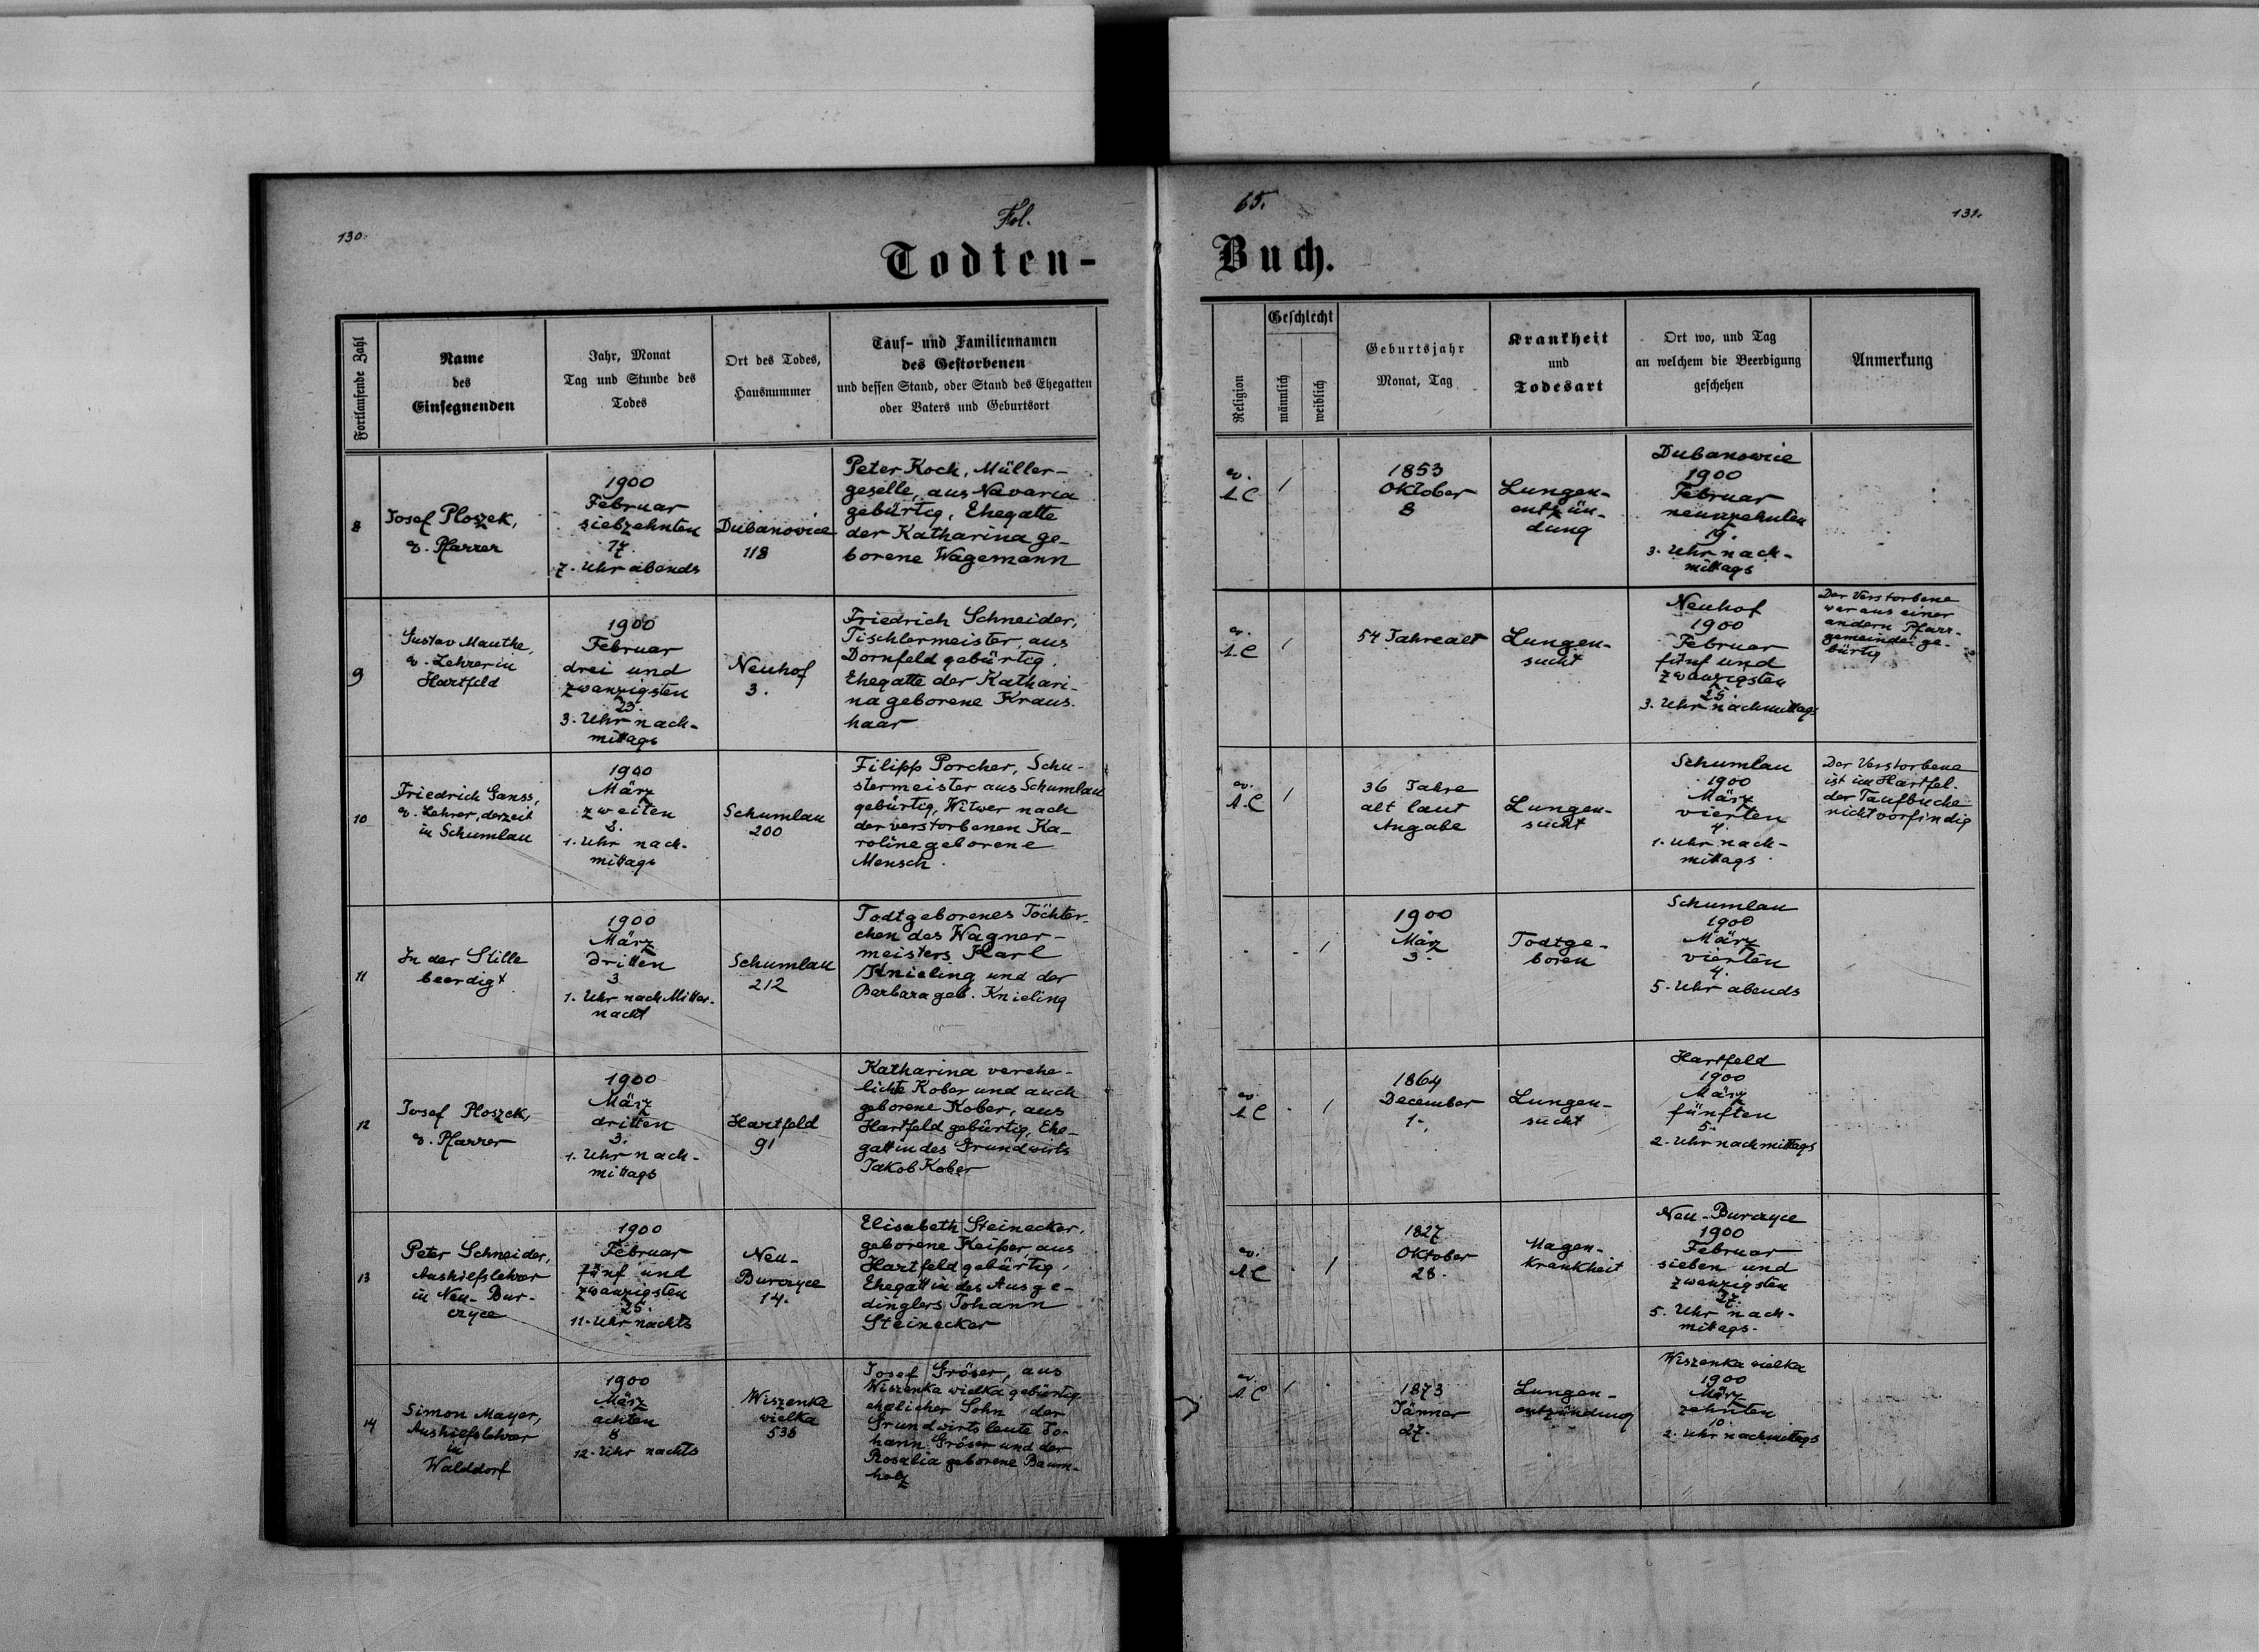 130.
Fol.
65.
131.
Todten-
Buch.
Fortlaufende Zahl
Name
des
Einsegnenden
Jahr, Monat
Tag und Stunde des
Todes
Ort des Todes,
Hausnummer
Tauf- und Familiennamen
des Gestorbenen
und dessen Stand, oder Stand des Ehegatten
oder Vaters und Geburtsort
Religion
Geschlecht
männlich
weiblich
Geburtsjahr
Monat, Tag
Krankheit
und
Todesart
Ort wo, und Tag
an welchem die Beerdigung
geschehen
Anmerkung
8
Josef Ploszek,
ev. Pfarrer
1900
Februar
siebzehnten
17.
7. Uhr abends
Dubanovice
118
Peter Koch, Müller-
geselle, aus Navaria
gebürtig, Ehegatte
der Katharina ge-
borene Wagemann
ev.
A.C
1
1853
Oktober
8
Lungen-
entzün-
dung
Dubanowice
1900
Februar
neunzehnten
19.
3. Uhr nach-
mittags
9
Gustav Mauthe,
ev. Lehrer in
Hartfeld
1900
Februar
drei und
zwanzigsten
23.
3. Uhr nach-
mittags
Neuhof
3.
Friedrich Schneider,
Tischlermeister, aus
Dornfeld gebürtig,
Ehegatte der Kathari-
na geborene Kraus-
haar
ev.
A.C
1
54 Jahre alt
Lungen-
sucht
Neuhof
1900
Februar
fünf und
zwanzigsten
25.
3. Uhr nachmittags
Der Verstorbene
war aus einer
andern Pfarr-
gemeinde ge-
bürtig
10
Friedrich Ganss,
ev. Lehrer, derzeit
in Schumlau
1900
März
zweiten
2.
1. Uhr nach-
mittags
Schumlau
200
Filipp Porcher, Schu-
stermeister aus Schumlau
gebürtig, Witwer nach
der verstorbenen Ka-
roline geborene
Mensch.
ev.
A.C
1
36 Jahre
alt laut
Angabe
Lungen-
sucht
Schumlau
1900
März
vierten
4.
1. Uhr nach-
mittags
Der Verstorbene
ist im Hartfel-
der Taufbuche
nicht vorfindig
11
In der Stille
beerdigt
1900
März
dritten
3
1. Uhr nach Mitter-
nacht
Schumlau
212
Todtgeborenes Töchter-
chen des Wagner-
meisters Karl
Knieling und der
Barbara geb. Knieling
- - 1
1900
März
3.
Todtge-
boren
Schumlau
1900
März
vierten
4.
5. Uhr abends
12
Josef Ploszek,
ev. Pfarrer
1900
März
dritten
3.
1. Uhr nach-
mittags
Hartfeld
91
Katharina verehe-
lichte Kober und auch
geborene Kober, aus
Hartfeld gebürtig, Ehe-
gattin des Grundwirts
Jakob Kober
ev.
A.C
- 1
1864
December
1.
Lungen-
sucht
Hartfeld
1900
März
fünften
5.
2. Uhr nachmittags
13
Peter Schneider,
Aushilfslehrer
in Neu-Bur-
czyce
1900
Februar
fünf und
zwanzigsten
25.
11. Uhr nachts
Neu-
Burczyce
14.
Elisabeth Steinecker,
geborene Keißer, aus
Hartfeld gebürtig,
Ehegattin des Ausge-
dinglers Johann
Steinecker
ev.
A.C
- 1
1827
Oktober
28.
Magen-
krankheit
Neu-Burczyce
1900
Februar
sieben und
zwanzigsten
27.
5. Uhr nach-
mittags.
14
Simon Mayer,
Aushilfslehrer
in
Walddorf
1900
März
achten
8
12. Uhr nachts
Wiszenka
wielka
538
Josef Gröser, aus
Wiszenka wielka gebürtig
ehelicher Sohn der
Grundwirtsleute Jo-
hann Gröser und der
Rosalia geborene Baum-
holz
ev.
A.C
1
1873
Jänner
27.
Lungen-
entzündung
Wiszenka wielka
1900
März
zehnten
10.
2. Uhr nachmittags